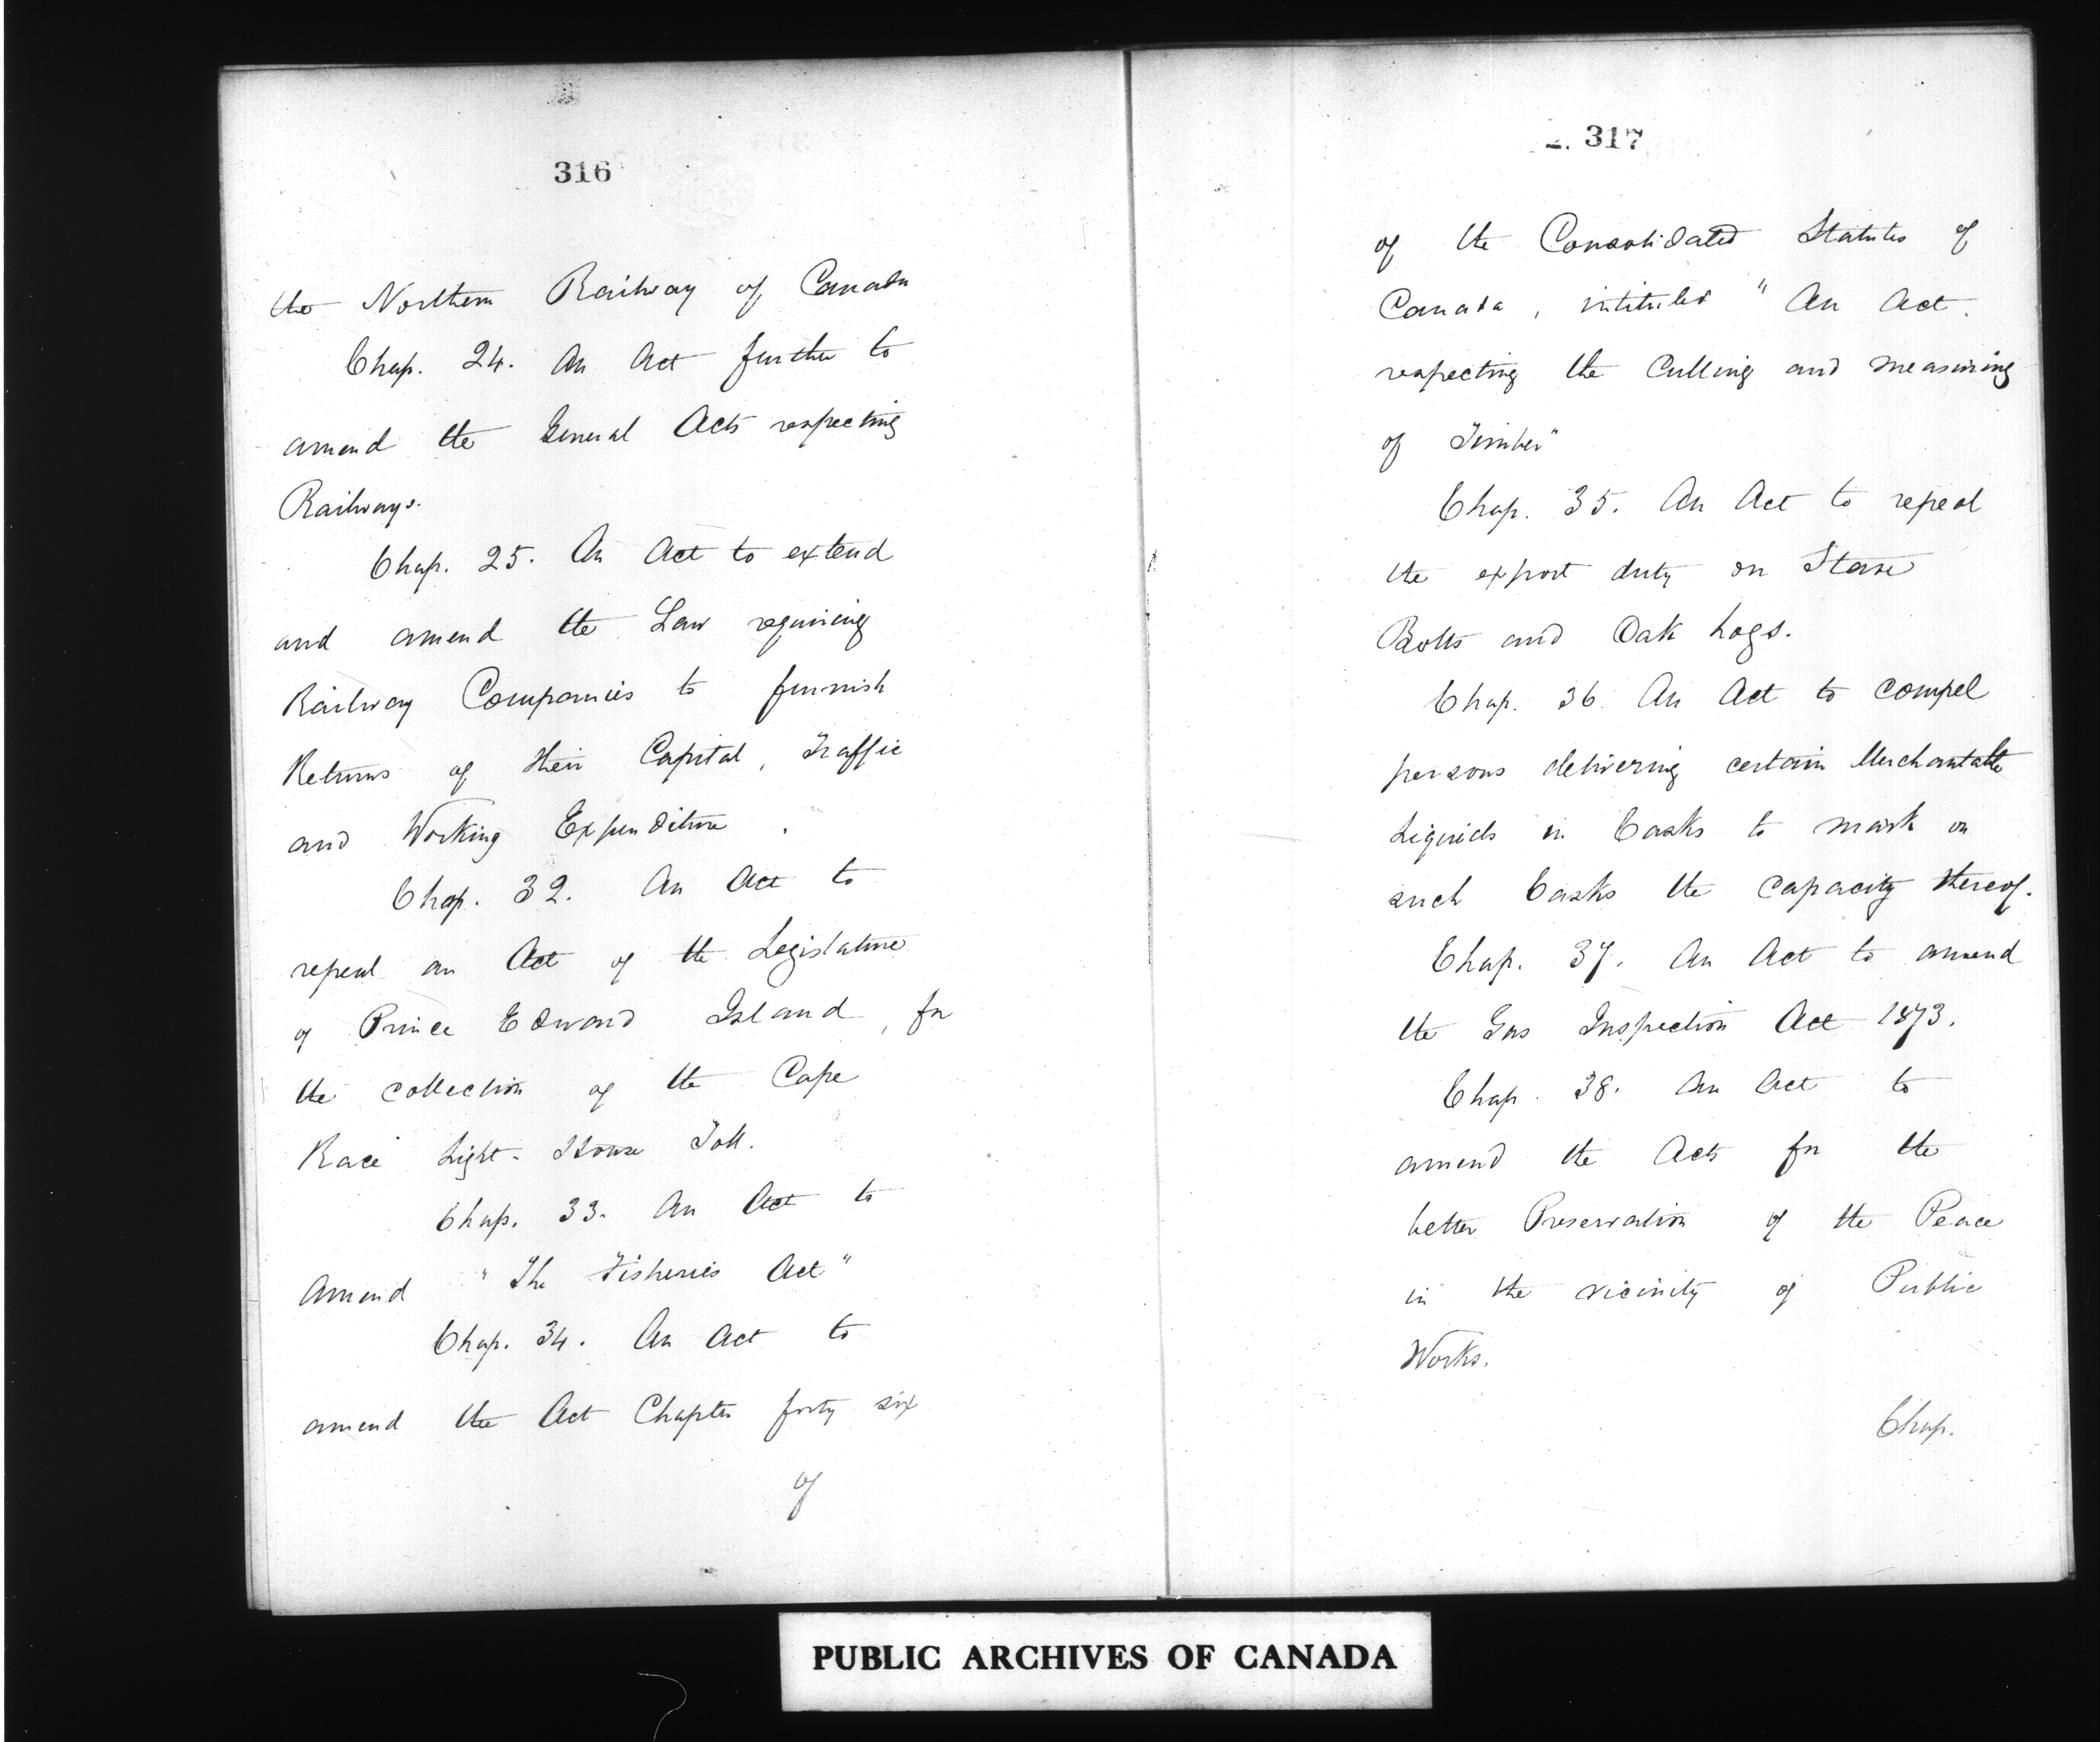 316
the Northern Railway of Canada
Chap. 24. An Act further to
amend the General Acts respecting
Railways.
Chap. 25. An Act to extend
and amend the Law requiring
Railway Companies to furnish
Returns of their Capital, Traffic
and Working Expenditure.
Chap. 32. An Act to
repeal an Act of the Legislature
of Prince Edward Island, for
the collection of the Cape
Race Light-House Toll.
Chap. 33. An Act to
Amend "The Fisheries Act"
Chap. 34. An Act to
amend the Act Chapter forty six
of
317
of the Consolidated Statutes of
Canada, intituled "An Act
respecting the Culling and measuring
of Timber"
Chap. 35. An Act to repeal
the export duty on Stave
Bolts and Oak Logs.
Chap. 36 An Act to compel
persons delivering certain Merchantable
Liquids in Casks to mark on
such Casks the capacity thereof.
Chap. 37. An Act to amend
the Gas Inspection Act 1873.
Chap. 38. An Act to
amend the Acts for the
better Preservation of the Peace
in the vicinity of Public
Works.
Chap.
PUBLIC ARCHIVES OF CANADA